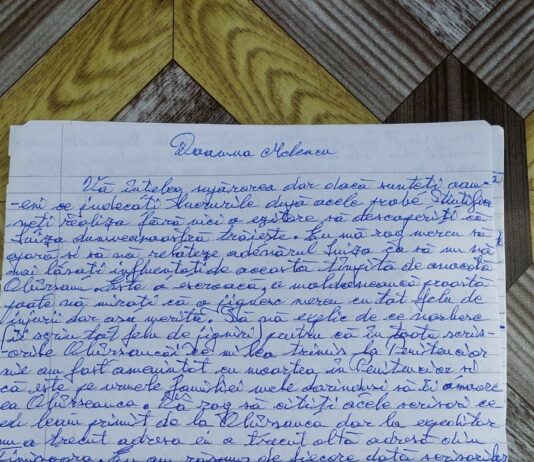 Doamna Melencu
Vă înțeleg supărarea dar dacă sunteți oam-
-eni se judecați lucrurile după acele probe Științifi
veți realiza fără nici o ezitare să descoperiți că
Luiza dumneavoastră trăiește. Eu mă rog mereu să
apară și să vă relateze adevărul Luiza ca să nu vă
mai lăsați influentați de această țîmpita de avocata
Obîrsanu. Este o escroacă, o moldoveancă proastă
poate vă mirați că o jignesc mereu cu tot felu de
injurii dar asa merită. Să vă explic de ce vorbesc
și scriu tot felu de jigniri pentru că în toate scris-
-orile Obîrsancăi ce mi lea trimis la Penitenciar
mie am fost amenințat cu moartea în Penitenciar si
că este pe urmele familiei mele dorindusi să le omoare
ea Obîrseanca. Vă rog să citiți acele scrisori ce
eu leam primit de la Obîrsanca dar la expeditor
nu a trecut adresa ei a trecut altă adresă din
Timișoara. Eu am răspuns de fiecare dată scrisorilor